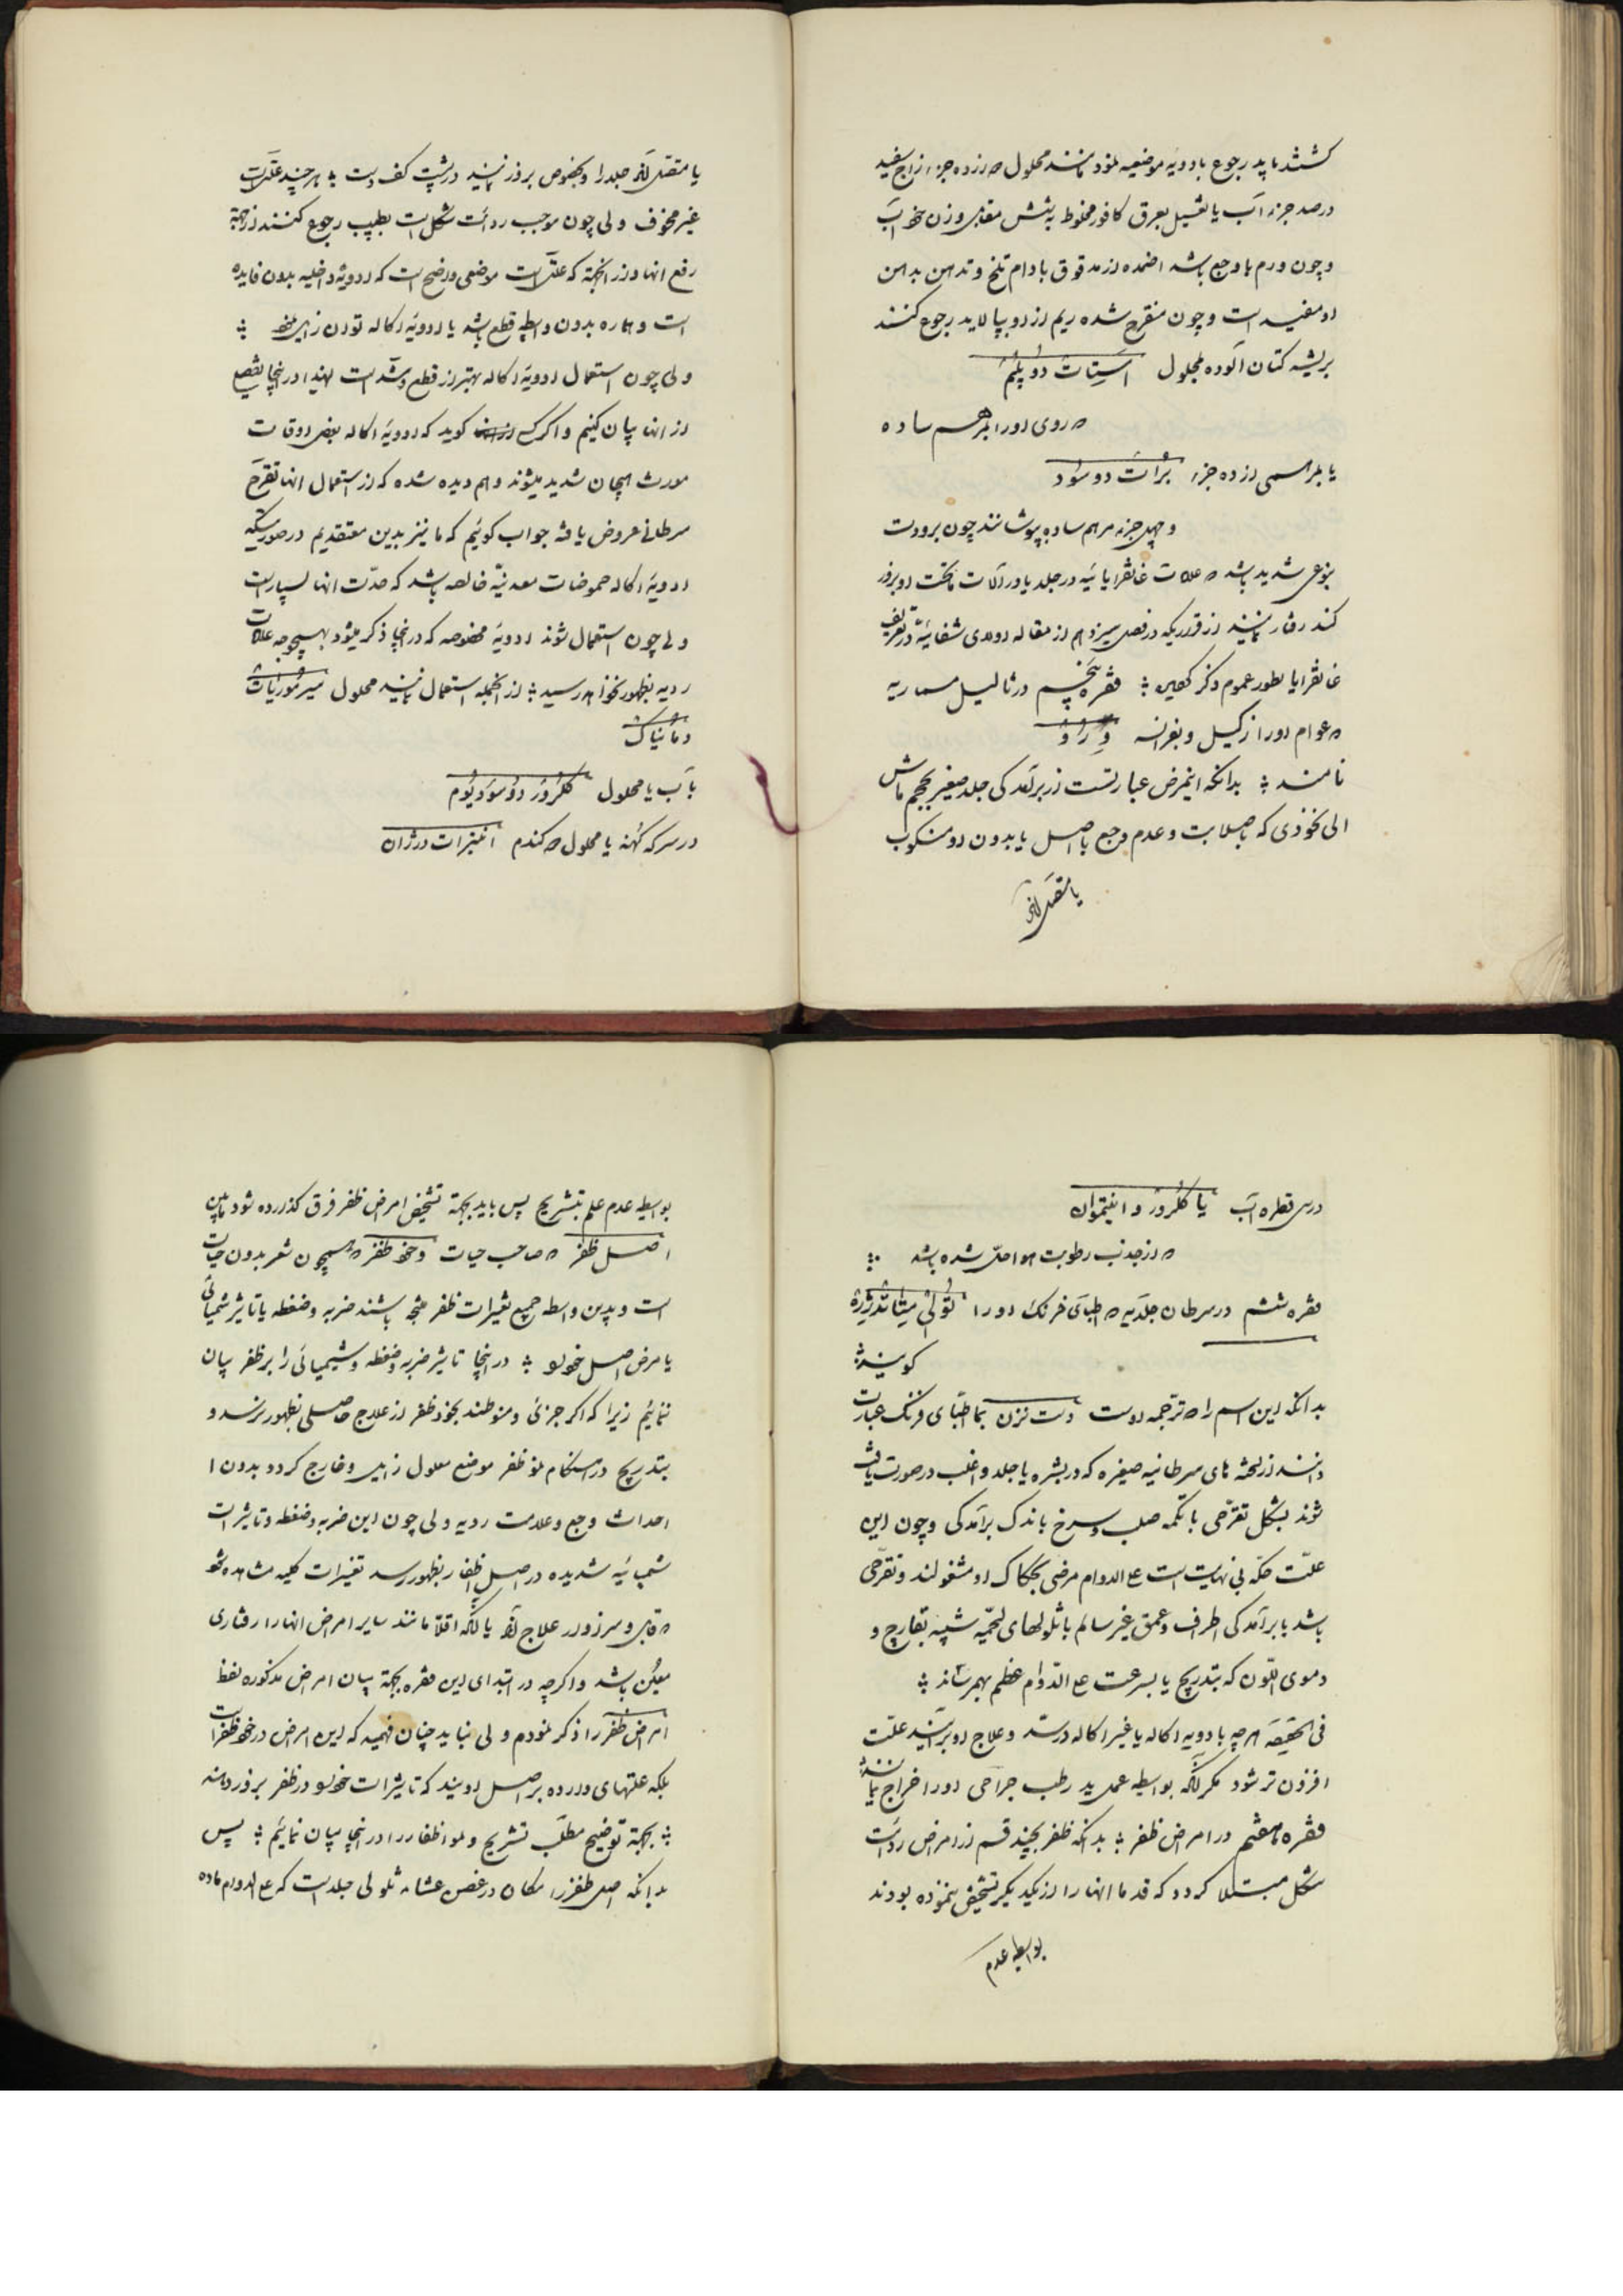 کشتند باید رجوع بادویه موضعیه نمود مانند محلول ده جزء زاج سفید
درصد جزء آب یا تغسیل بعرق کافور مخلوط به شش مقابل وزن خود آب
و چون ورم با وجع باشد اضمده از مدقوق بادام تلخ و تدهین بدهن
او مفید است و چون متقرح شده ریم از او بپالاید رجوع کنند
بریشه کتان آلوده بمحلول استات دو پلمم
روی او را بمرهم ساده
یا بمرهمی از ده جزء براث دو سود
و چهل جزء مرهم ساده بپوشانند چون برودت
بنوعی شدید باشد علامات غانقرایائیه در جلد یا در آلات ماتحت او بروز
کند رفتار نمایند از قراریکه در فصل سیزدهم از مقاله اولای شفائیه در تعریف
غانقرایا بطور عموم ذکر کردیم فقره پنجم در ثالیل مسماریه
عوام او را زگیل و بفرانسه ورّو
نامند بدانکه اینمرض عبارتست از برآمدگی جلد صغیر بحجم ماش
الی نخودی که با صلابت و عدم وجع با اصل یا بدون او منکوب
یا متصل آنکه
یا متصل آنکه جلد را و بخصوص بروز نمایند در پشت کف دست هرچند علت
غیر مخوف ولی چون موجب ردائت شکل است بطبیب رجوع کنند از جهة
رفع آنها و از آنجهة که علت است موضعی واضح است که ادویه داخلیه بدون فایده
است و هماره بدون واسطه قطع باشد یا ادویه اکاله توان زایل نمود
ولی چون استعمال ادویه اکاله بهتر از قطع و شد است لهذا در اینجا تفصیل
از آنها بیان کنیم و اگر کسی گوید که ادویه اکاله بعضی اوقات
مورث هیجان شدید میشوند و هم دیده شده که از استعمال آنها تقرح
سرطانی عروض یافته جواب گوئیم که ما نیز بدین معتقدیم در صورتیکه
ادویه اکاله حموضات معدنیه خالصه باشد که حدت آنها بسیار است
ولی چون استعمال شوند ادویه مخصوصه که در اینجا ذکر میشود بهیچوجه علامات
ردیه بظهور نخواهد رسید از آنجمله استعمال نمایند محلول میر موریات
دمانیاک
با آب یا محلول کلرور دو سودیوم
در سرکه کهنه یا محلول گندم انیترات درژان
در سی قطره آب یا کلرور و انتیموان
از جذب رطوبت هوا حل شده باشد
فقره ششم در سرطان جلدیه اطبای فرنک او را نولی متانژره
گویند
بدانکه این اسم را ترجمه اوست دست نزن بما اطبای فرنک عبارت
دانند از لخته های سرطانیه صغیره که در بشره یا جلد و اغلب در صورت یافت
شوند بشکل تقرحی با تکمه صلب و سرخ باندک برآمدگی و چون این
علت حکه بی نهایت است علی الدوام مرضی بحکاک او مشغولند و تقرحی
باشد با برآمدگی اطراف و عمق غیر سالم با تلولهای لحمیه شبیه بقارچ و
دموی اللون که بتدریج یا بسرعت علی الدوام عظم بهمرسانند
فی الحقیقه هرچه بادویه اکاله یا غیر اکاله درصدد علاج او برآیند علت
افزون تر شود مگر آنکه بواسطه عمل ید و طب جراحی او را اخراج نمایند
فقره هفتم در امراض ظفر بدانکه ظفر بچند قسم از امراض ردائت
شکل مبتلا گردد که قدما آنها را از یکدیگر تشخیص ننموده بودند
بواسطه عدم
بواسطه عدم علم بتشریح پس باید بجهة تشخیص امراض ظفر فرق گذارده شود مابین
اصل ظفر صاحب حیات و خود ظفر همچون شعر بدون حیات
است و بدین واسطه جمیع تغیرات ظفر نتیجه باشند ضربه و ضغطه یا تاثیر شیمیائی
یا مرض اصل خود او در اینجا تاثیر ضربه و ضغطه و شیمیائی را بر ظفر بیان
ننمائیم زیرا که اگر جزئی و منوطند بخود ظفر از علاج حاصلی بظهور نرسد و
بتدریج در هنگام نمو ظفر موضع معلول زایل و خارج گردد بدون
احداث وجع و علامت ردیه ولی چون این ضربه و ضغطه و تاثیرات
شیمیائیه شدیده در اصل اظفار بظهور رسد تغییرات کلیه مشاهده شود
قابل و سزاوار علاج آید یا آنکه اقلاً مانند سایر امراض آنها را رفتاری
معین باشد و اگرچه در ابتدای این فقره بجهة بیان امراض مذکوره لفظ
امراض ظفر را ذکر نمودم ولی نباید چنان فهمید که این امراض در خود ظفر است
بلکه علتهای وارده بر اصل اویند که تاثیرات خود را در ظفر بروز دهند
بجهة توضیح مطلب تشریح و نمو اظفار را در اینجا بیان نمائیم پس
بدانکه اصل ظفر را مکان در غصن غشاء تلولی جلد است که علی الدوام ماده